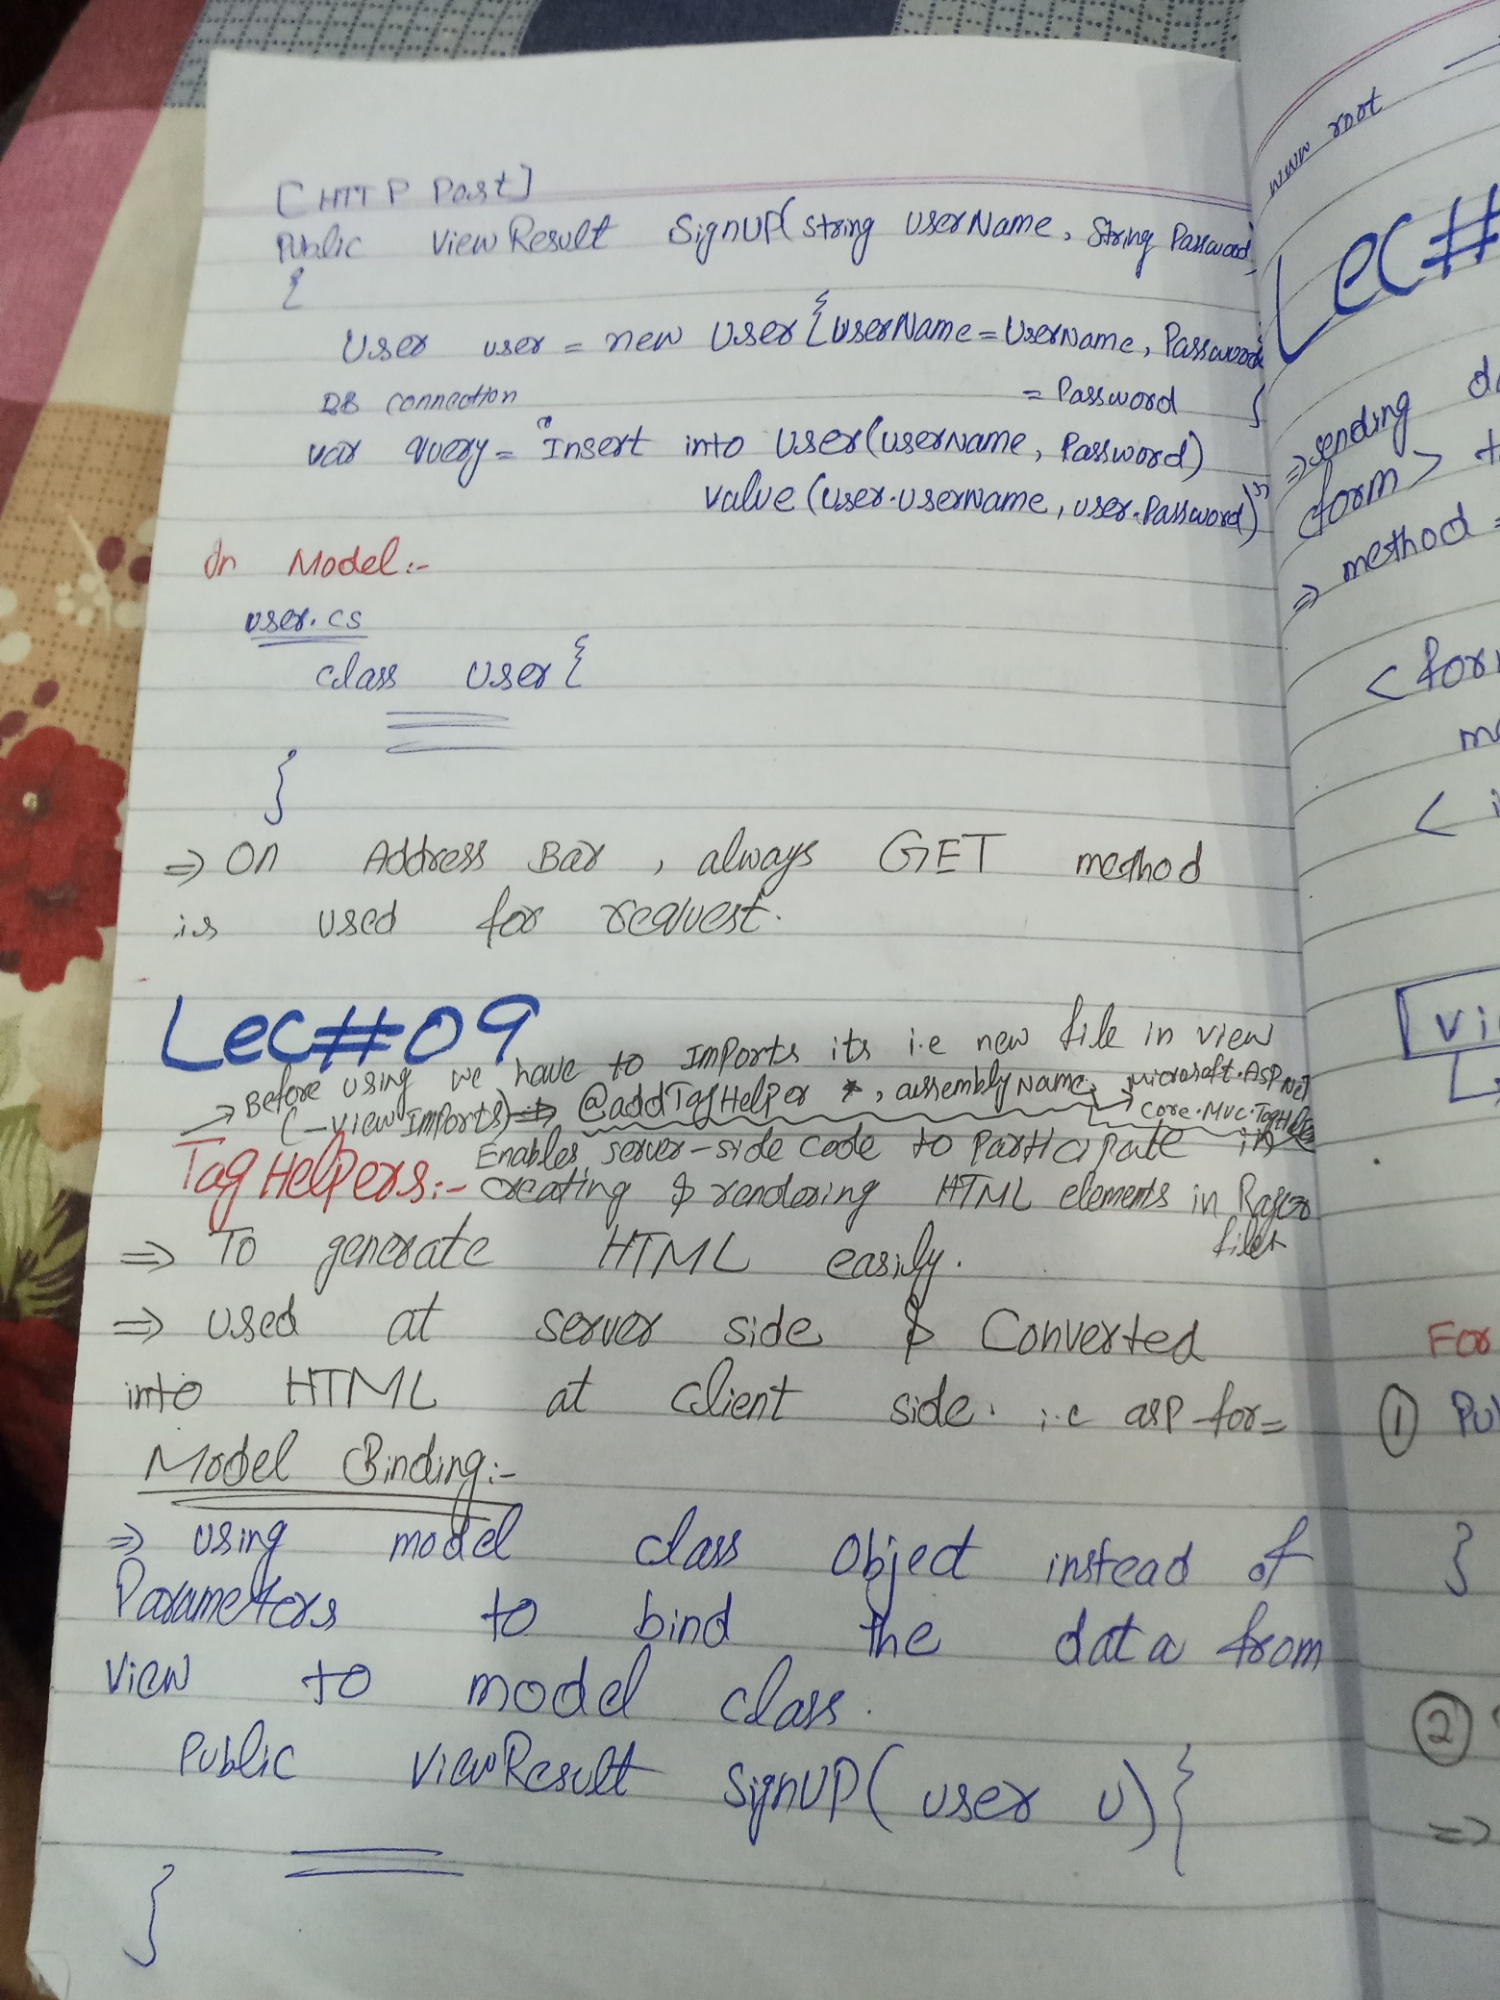 [HTTP Post]
Public ViewResult SignUP(string UserName, String Password
{
User user = new User{UserName=UserName, Password
= Password }
DB connection
var query= "Insert into User(userName, Password)
value (user.userName, user.Password)"
In Model:-
user.cs
class User{
}
⇒ On Address Bar, always GET method
is used for request.
Lec#09
→ Before using we have to Imports its i.e new file in view
(_viewImports)⇒ @addTagHelper *, assemblyName, → Microsoft.AspNet
Core.Mvc.TagHelper
TagHelpers:- Enables server-side code to Participate in
creating & rendering HTML elements in Razor
files
⇒ To generate HTML easily.
⇒ used at server side & Converted
into HTML at client side. i.e asp-for=
Model Binding:-
⇒ using model class Object instead of
Parameters to bind the data from
View to model class.
Public ViewResult SignUP(user u){
}
www root
Lec#
⇒ sending
<form>
⇒ method =
<
<
For
① Pu
}
②
⇒